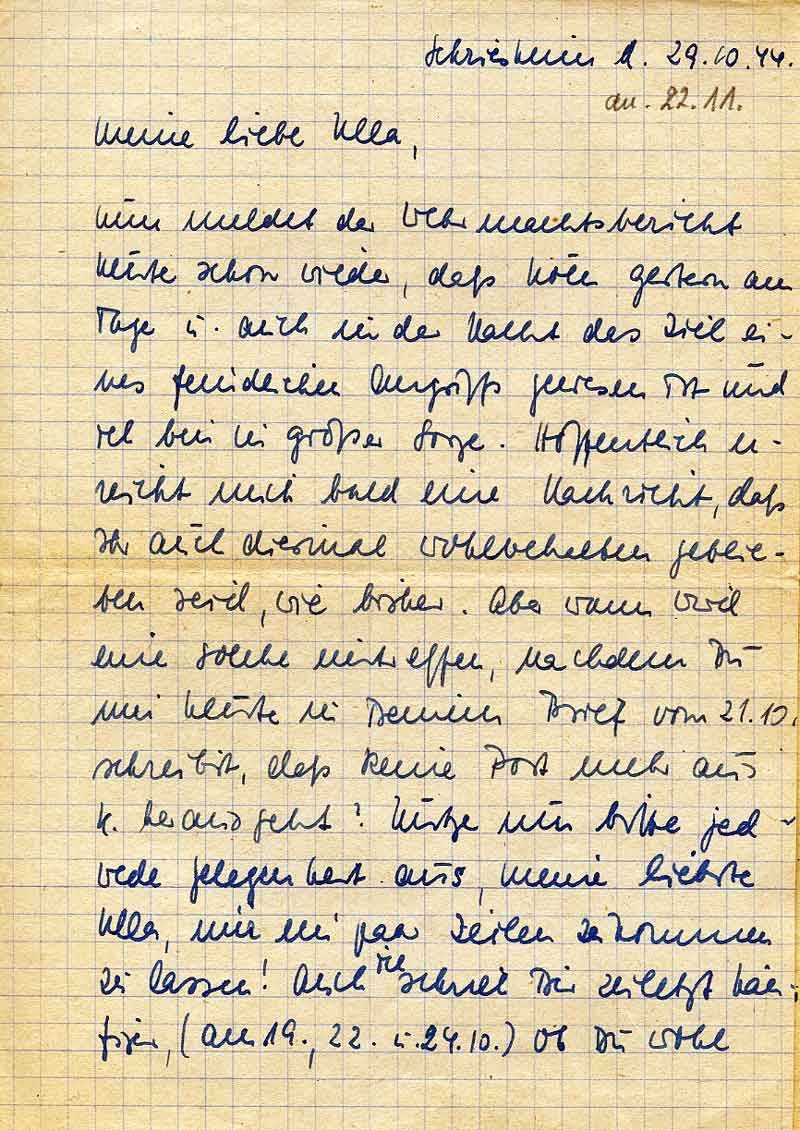 Schriesheim d. 29.10.44.
an. 22.11.
Meine liebe Ulla,
Nun meldet der Wehrmachtsbericht
heute schon wieder, daß Köln gestern am
Tage u. auch in der Nacht das Ziel ei-
nes feindlichen Angriffs gewesen ist und
ich bin in großer Sorge. Hoffentlich er-
reicht mich bald eine Nachricht, daß
Ihr auch diesmal wohlbehalten geblie-
ben seid, wie bisher. Aber wann wird
eine solche eintreffen, nachdem Du
mir heute in Deinem Brief vom 21.10.
schreibst, daß keine Post mehr aus
K. herausgeht? Nutze nun bitte jed-
wede Gelegenheit aus, meine liebste
Ulla, mir ein paar Zeilen zukommen
zu lassen! Auch ich schrieb Dir zuletzt häu-
figer, (am 19., 22. u. 24.10.) Ob Du wohl